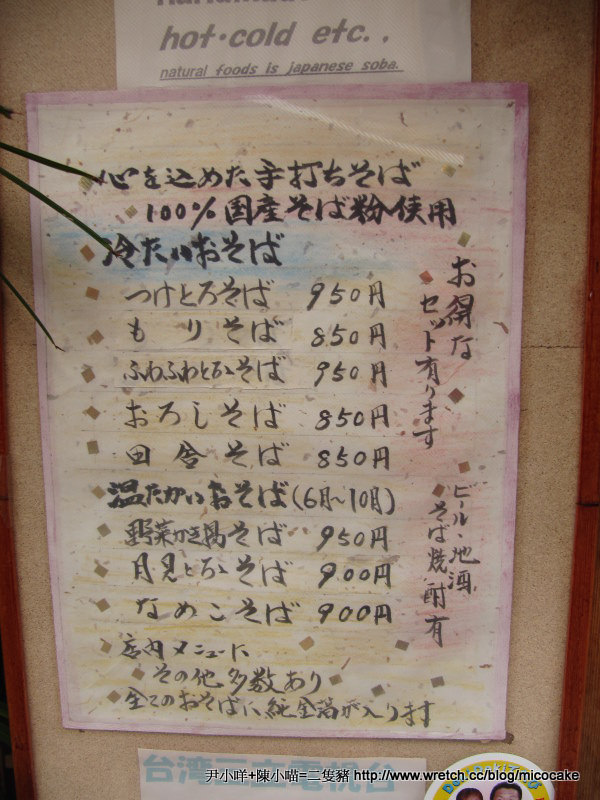 hot・cold etc..
natural foods is japanese soba.
心を込めた手打ちそば
100%国産そば粉使用
冷たいおそば
つけとろそば 950円
もりそば 850円
ふわふわとろろそば 950円
おろしそば 850円
田舎そば 850円
温たかいおそば(6月~10月)
野菜かき揚そば 950円
月見とろろそば 900円
なめこそば 900円
店内メニューに
その他多数あり
全てのおそばに純金箔が入ります
お得な
セット有ります
ビール・地酒
そば焼酎有
台湾三立電視台
尹小咩+陳小喵=二隻豬 http://www.wretch.cc/blog/micocake